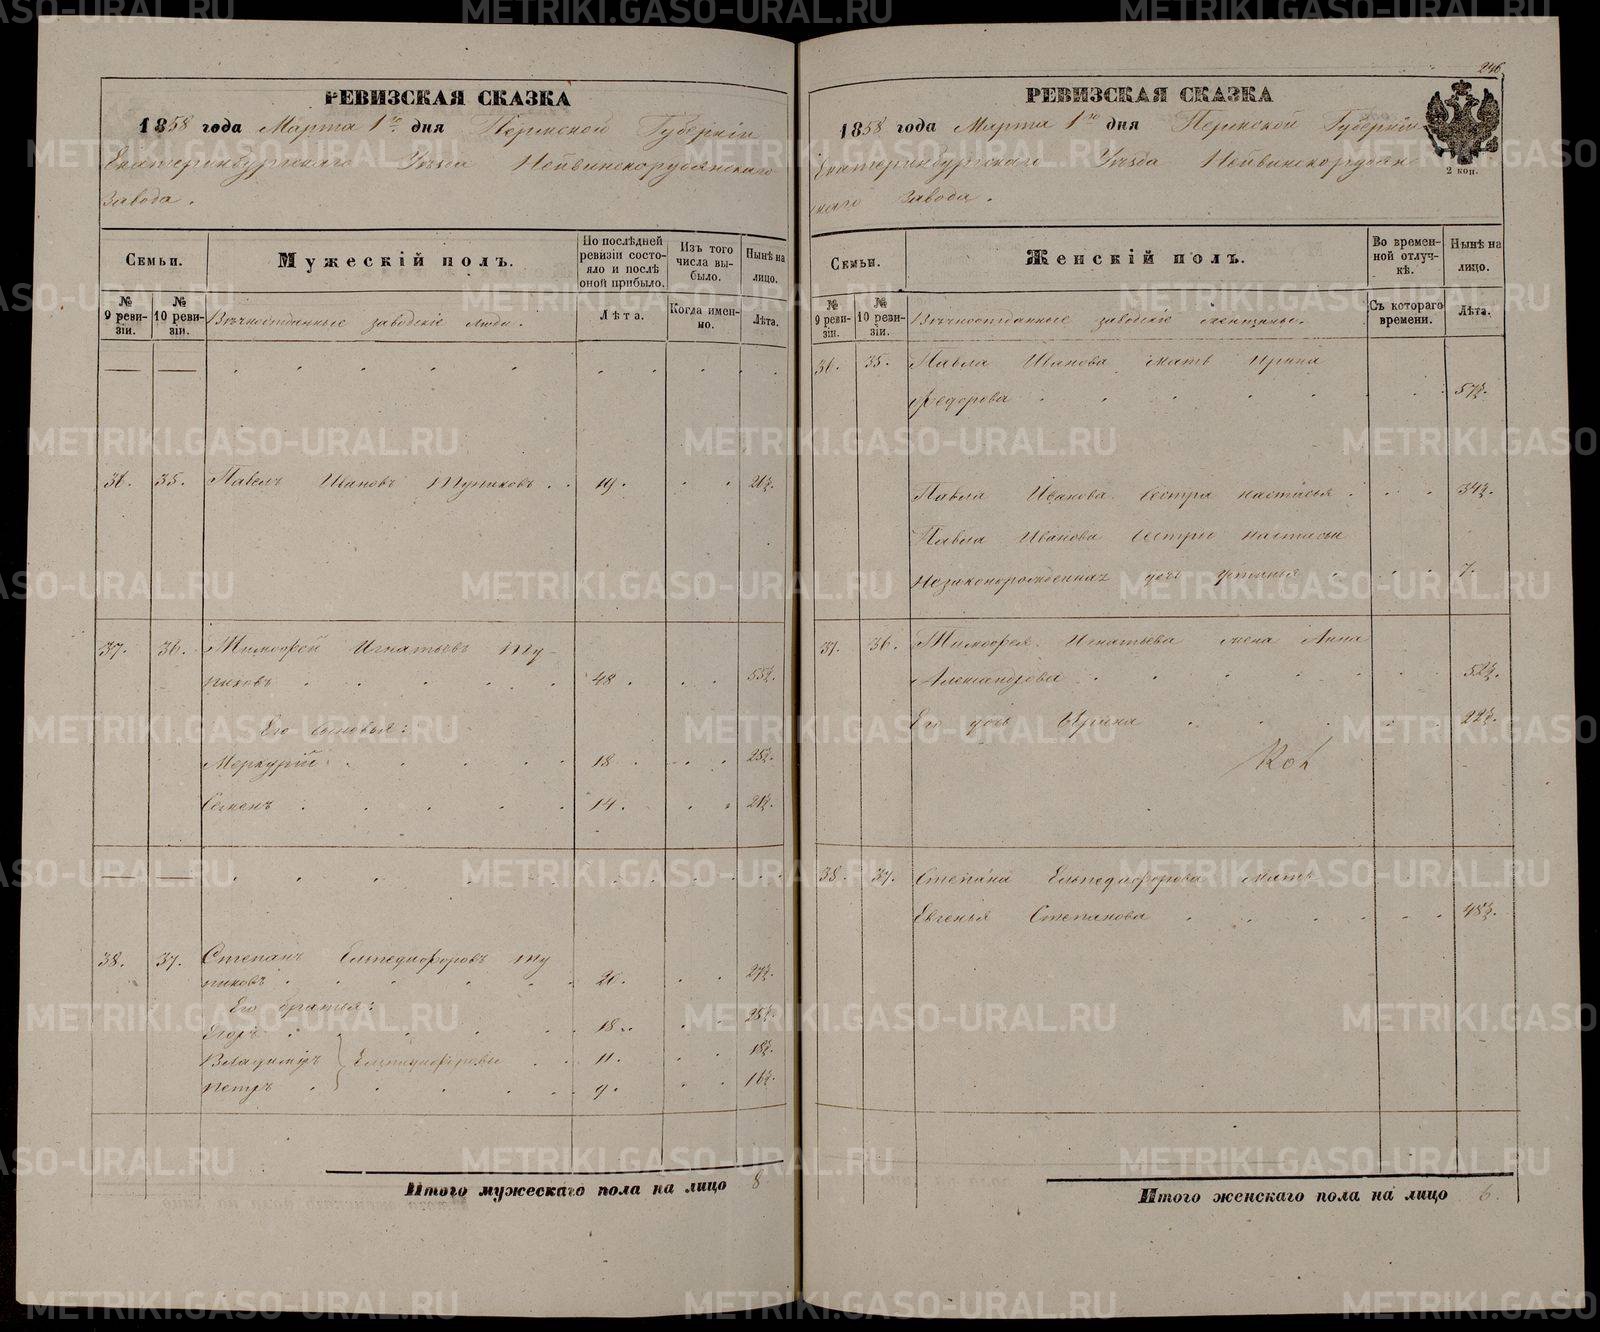 РЕВИЗСКАЯ СКАЗКА
1858 года Марта 1го дня Пермской Губерніи
Екатеринбургскаго Уѣзда Нейвинскорудянскаго
Завода.
Семьи.
Мужескій полъ.
По послѣдней ревизіи состояло и послѣ оной прибыло.
Изъ того числа выбыло.
Нынѣ на лицо.
№ 9 ревизіи.
№ 10 ревизіи.
Вѣчноотданные заводскіе люди.
Лѣта.
Когда именно.
Лѣта.
36. 35. Павелъ Ивановъ Тупиковъ . . 19. . . 26½.
37. 36. Тимофей Игнатьевъ Ту-
пиковъ . . . . . 48. . . 55½.
Его сыновья:
Меркурій . . . . . 18. . . 25½.
Семенъ . . . . . 14. . . 21½.
38. 37. Степанъ Елпедифоровъ Ту
пиковъ . . . . . 20. . . 27½.
Его братья:
Егоръ . . . . . 18. . . 25½.
Владимиръ } Елпедифоровы . . 11. . . 18½.
Петръ . . . . . 9. . . 16½.
Итого мужескаго пола на лицо 8
246
РЕВИЗСКАЯ СКАЗКА
1858 года Марта 1го дня Пермской Губерніи
Екатеринбургскаго Уѣзда Нейвинскорудян
скаго Завода.
2 коп.
Семьи.
Женскій полъ.
Во временной отлучкѣ.
Нынѣ на лицо.
№ 9 ревизіи.
№ 10 ревизіи.
Вѣчноотданные заводскіе женщины.
Съ котораго времени.
Лѣта.
36. 35. Павла Иванова мать Ирина
Федорова . . . . . 57½.
Павла Иванова сестра Настасья . . . 34½.
Павла Иванова сестры Настасьи
незаконорожденная дочь Устинья . . . 7.
37. 36. Тимофея Игнатьева жена Анна
Александрова . . . . . 52½.
Его дочь Ирина . . . . . 22½.
38. 37. Степана Елпедифорова мать
Евгенья Степанова . . . . . 48½.
Итого женскаго пола на лицо 6.
METRIKI.GASO-URAL.RU